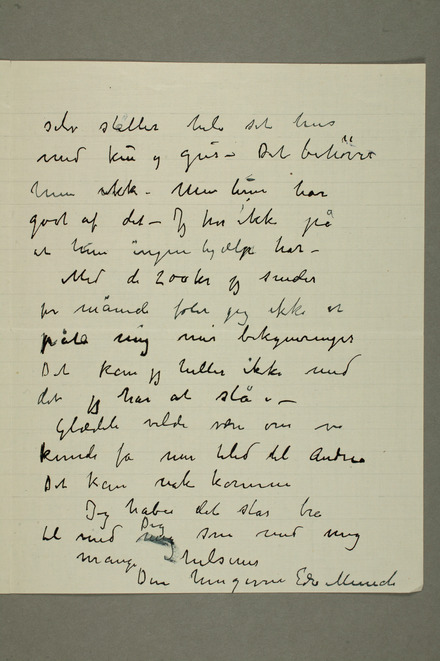 selv steller hele sit hus
med ku og gris – Det behøver
hun ikke – Men hun har
godt af det – Jeg ikke på
at hun ingen hjælp har –
Med de 200 kr jeg sender
pr måned føler jeg ikke at
påta mig mer bekymringer
Det kan jeg heller ikke med
det jeg har at stå i –
Glædelig vilde være om vi
kunde få mer bled til Andrea
Det kan nok komme
Jeg håber det står bra
til med Dig som med mig
mange hilsener
Din hengivne Edv Munch